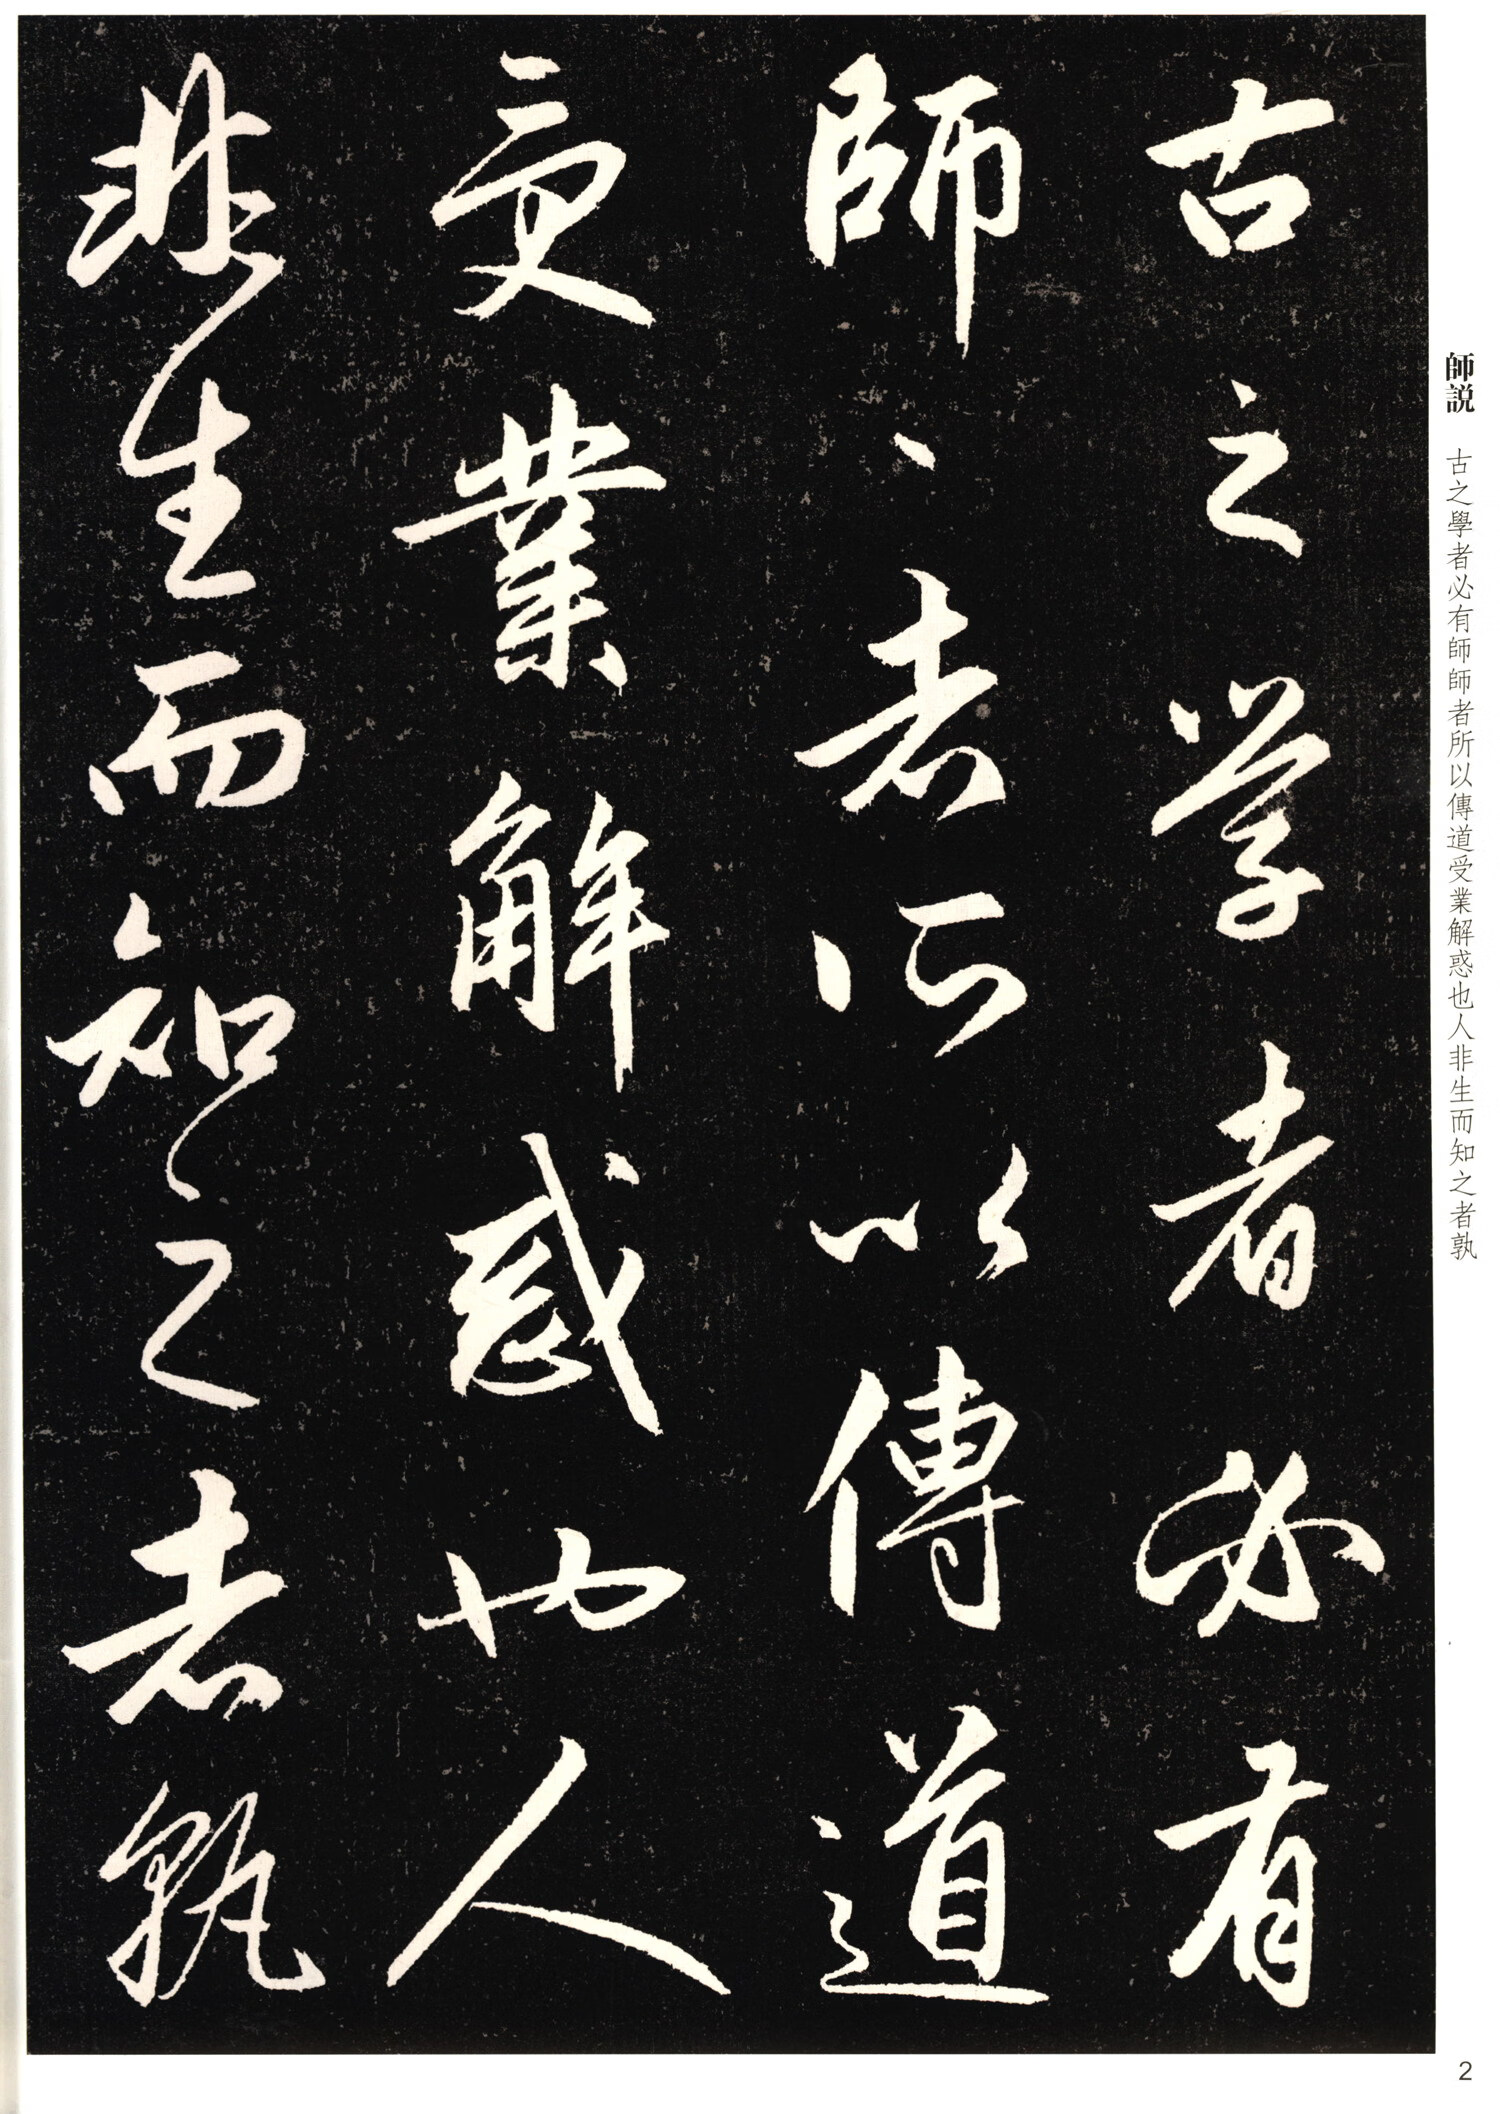 師説 古之學者必有師師者所以傳道受業解惑也人非生而知之者孰
古之学者必有
師〻者所以傳道
受業解惑也人
非生而知之者孰
2